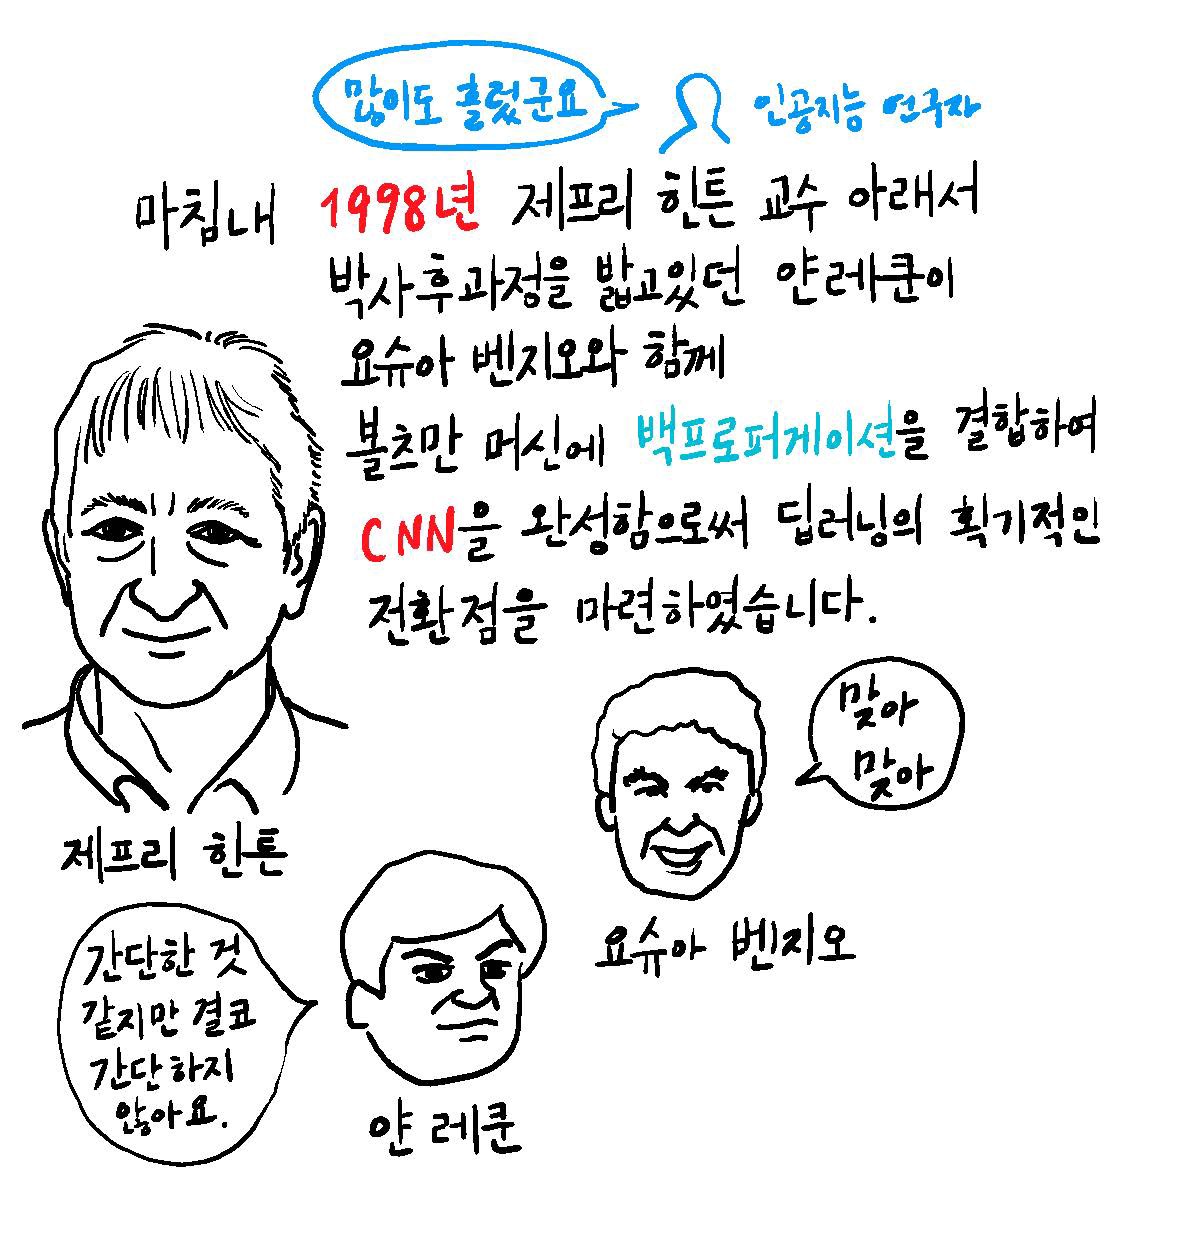 많이도 흘렀군요
인공지능 연구자
마침내 1998년 제프리 힌튼 교수 아래서
박사후과정을 밟고있던 얀레쿤이
요슈아 벤지오와 함께
볼츠만 머신에 백프로퍼게이션을 결합하여
CNN을 완성함으로써 딥러닝의 획기적인
전환점을 마련하였습니다.
맞아
맞아
제프리 힌튼
요슈아 벤지오
간단한 것
같지만 결코
간단하지
않아요.
얀 레쿤